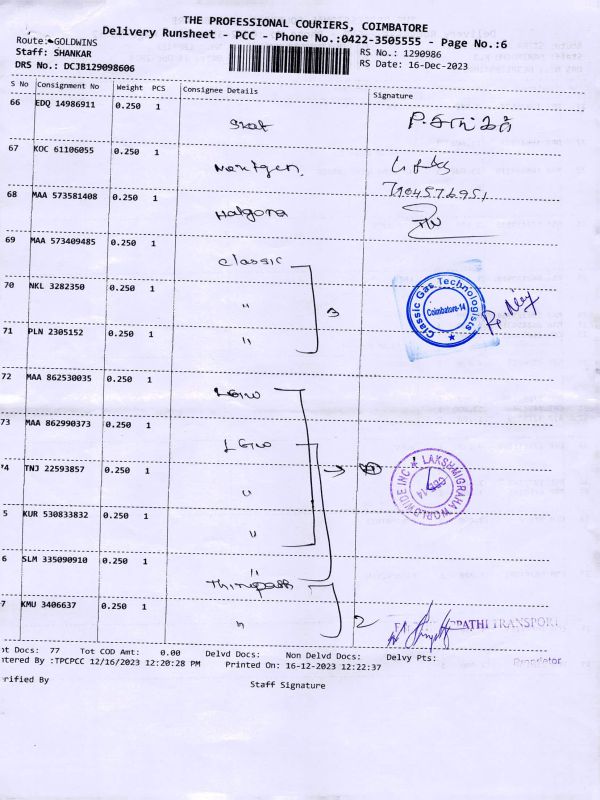 THE PROFESSIONAL COURIERS, COIMBATORE
Delivery Runsheet - PCC - Phone No.:0422-3505555 - Page No.:6
Route: GOLDWINS
Staff: SHANKAR
RS No.: 1290986
DRS No.: DCJB129098606
RS Date: 16-Dec-2023
S No Consignment No Weight PCS Consignee Details Signature
66 EDQ 14986911 0.250 1
67 KOC 61106055 0.250 1 Nextgen
7904576951
68 MAA 573581408 0.250 1
69 MAA 573409485 0.250 1 classic
70 NKL 3282350 0.250 1 " 3
Classic Gas Technologists
Coimbatore-14
71 PLN 2305152 0.250 1 "
72 MAA 862530035 0.250 1 LGW
73 MAA 862990373 0.250 1 LGW
74 TNJ 22593857 0.250 1 "
LAKSHMIGRAHA WORLDWIDE INC
5 KUR 530833832 0.250 1 "
6 SLM 335090910 0.250 1 "
Thirupathi
7 KMU 3406637 0.250 1 " 2
PATHI TRANSPORT
Proprietor
ot Docs: 77 Tot COD Amt: 0.00 Delvd Docs: Non Delvd Docs: Delvy Pts:
ntered By :TPCPCC 12/16/2023 12:20:28 PM Printed On: 16-12-2023 12:22:37
rified By
Staff Signature